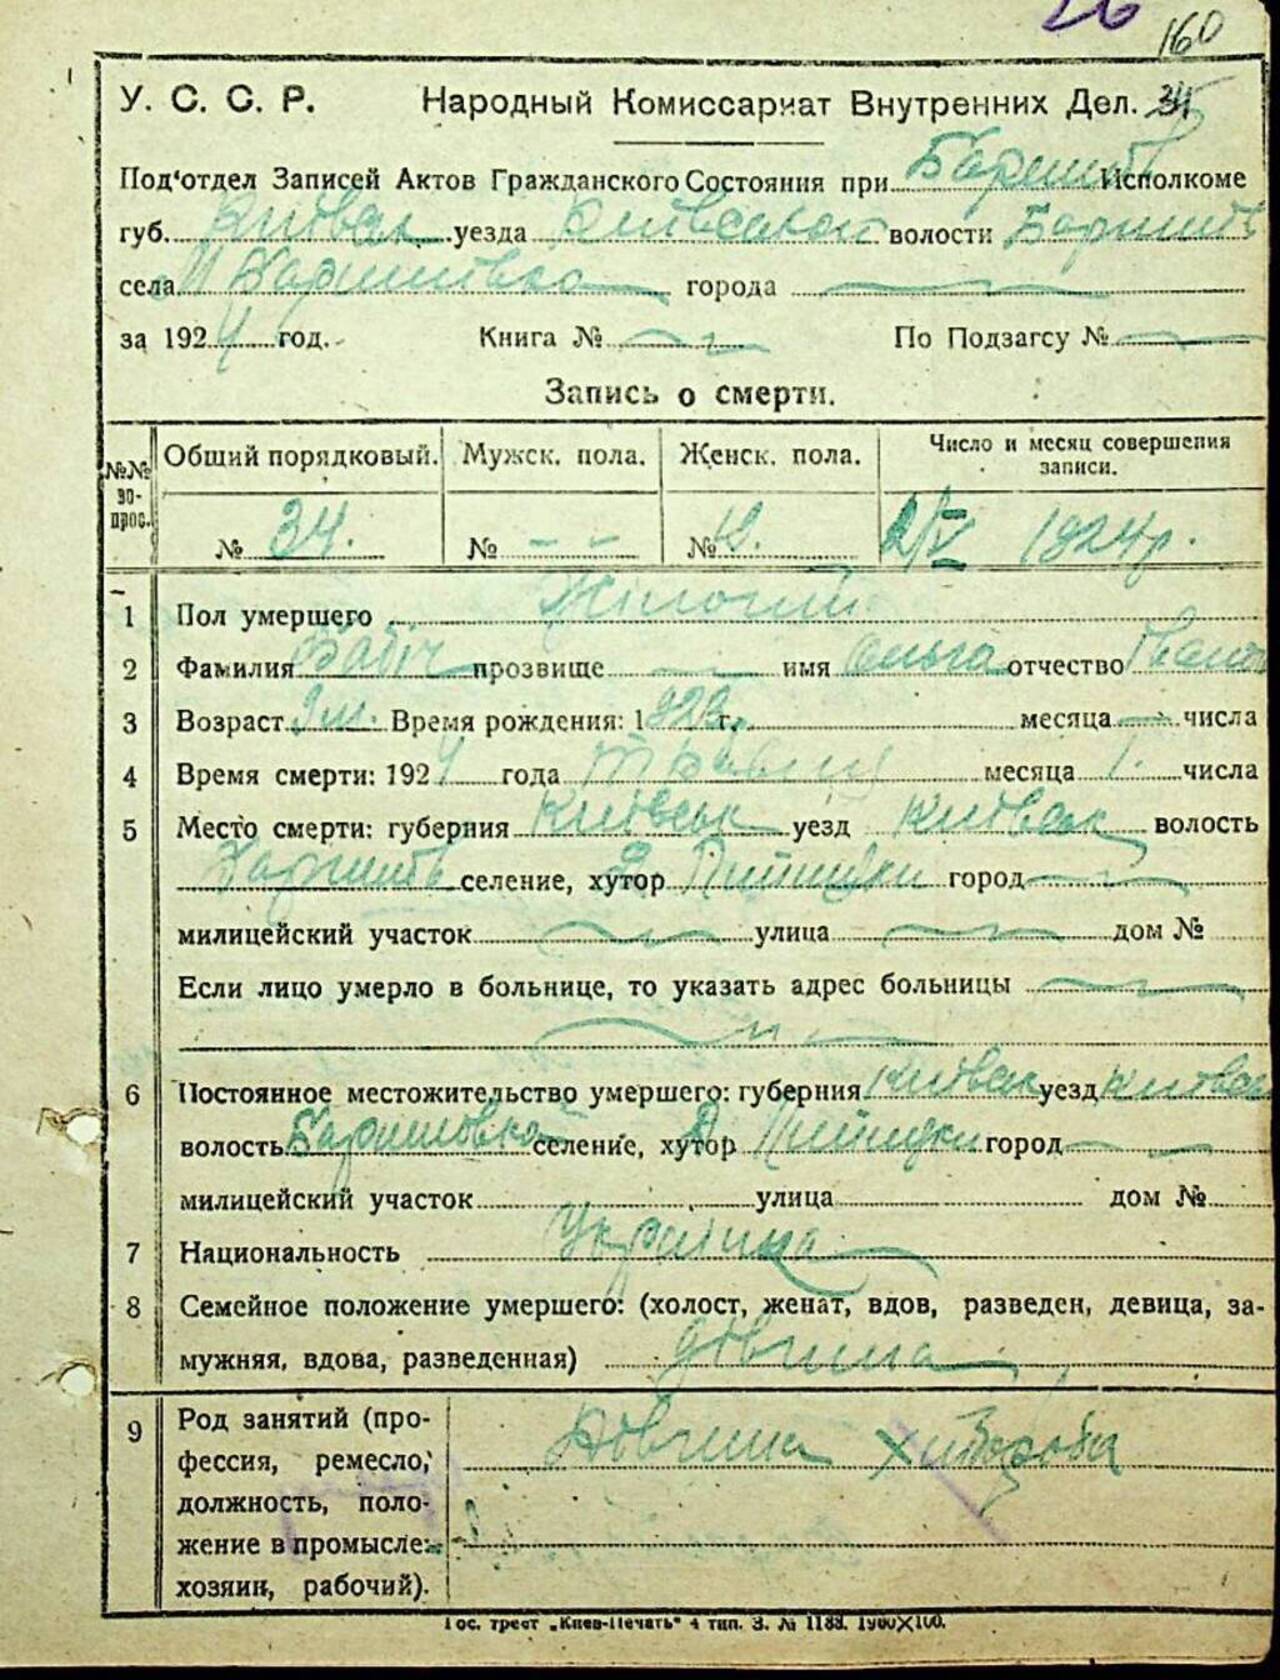 26 160
У. С. С. Р. Народный Комиссариат Внутренних Дел. 34
Под‘отдел Записей Актов Гражданского Состояния при Баришів Исполкоме
губ. Київськ уезда Київської волости Баришів
села М Баришівка города
за 1924 год. Книга № По Подзагсу №
Запись о смерти.
№№ вопрос. Общий порядковый. Мужск. пола. Женск. пола. Число и месяц совершения записи.
№ 34. № - - № 12. 2/V 1924 р.
1 Пол умершего Жіночий
2 Фамилия Бабіч прозвище имя Ольга отчество Іванов
3 Возраст Время рождения: 1923 г. месяца числа
4 Время смерти: 1924 года Травня месяца 1. числа
5 Место смерти: губерния Київськ уезд Київськ волость
Баришів селение, хутор город
милицейский участок улица дом №
Если лицо умерло в больнице, то указать адрес больницы
6 Постоянное местожительство умершего: губерния Київськ уезд Київськ
волость Баришовка селение, хутор город
милицейский участок улица дом №
7 Национальность Українка
8 Семейное положение умершего: (холост, женат, вдов, разведен, девица, за-
мужняя, вдова, разведенная) дівчина
9 Род занятий (про-
фессия, ремесло, Дівчина хлібороба
должность, поло-
жение в промысле:
хозяин, рабочий).
Гос. трест „Киев-Печать“ 4 тип. З. № 1188. 1900×100.